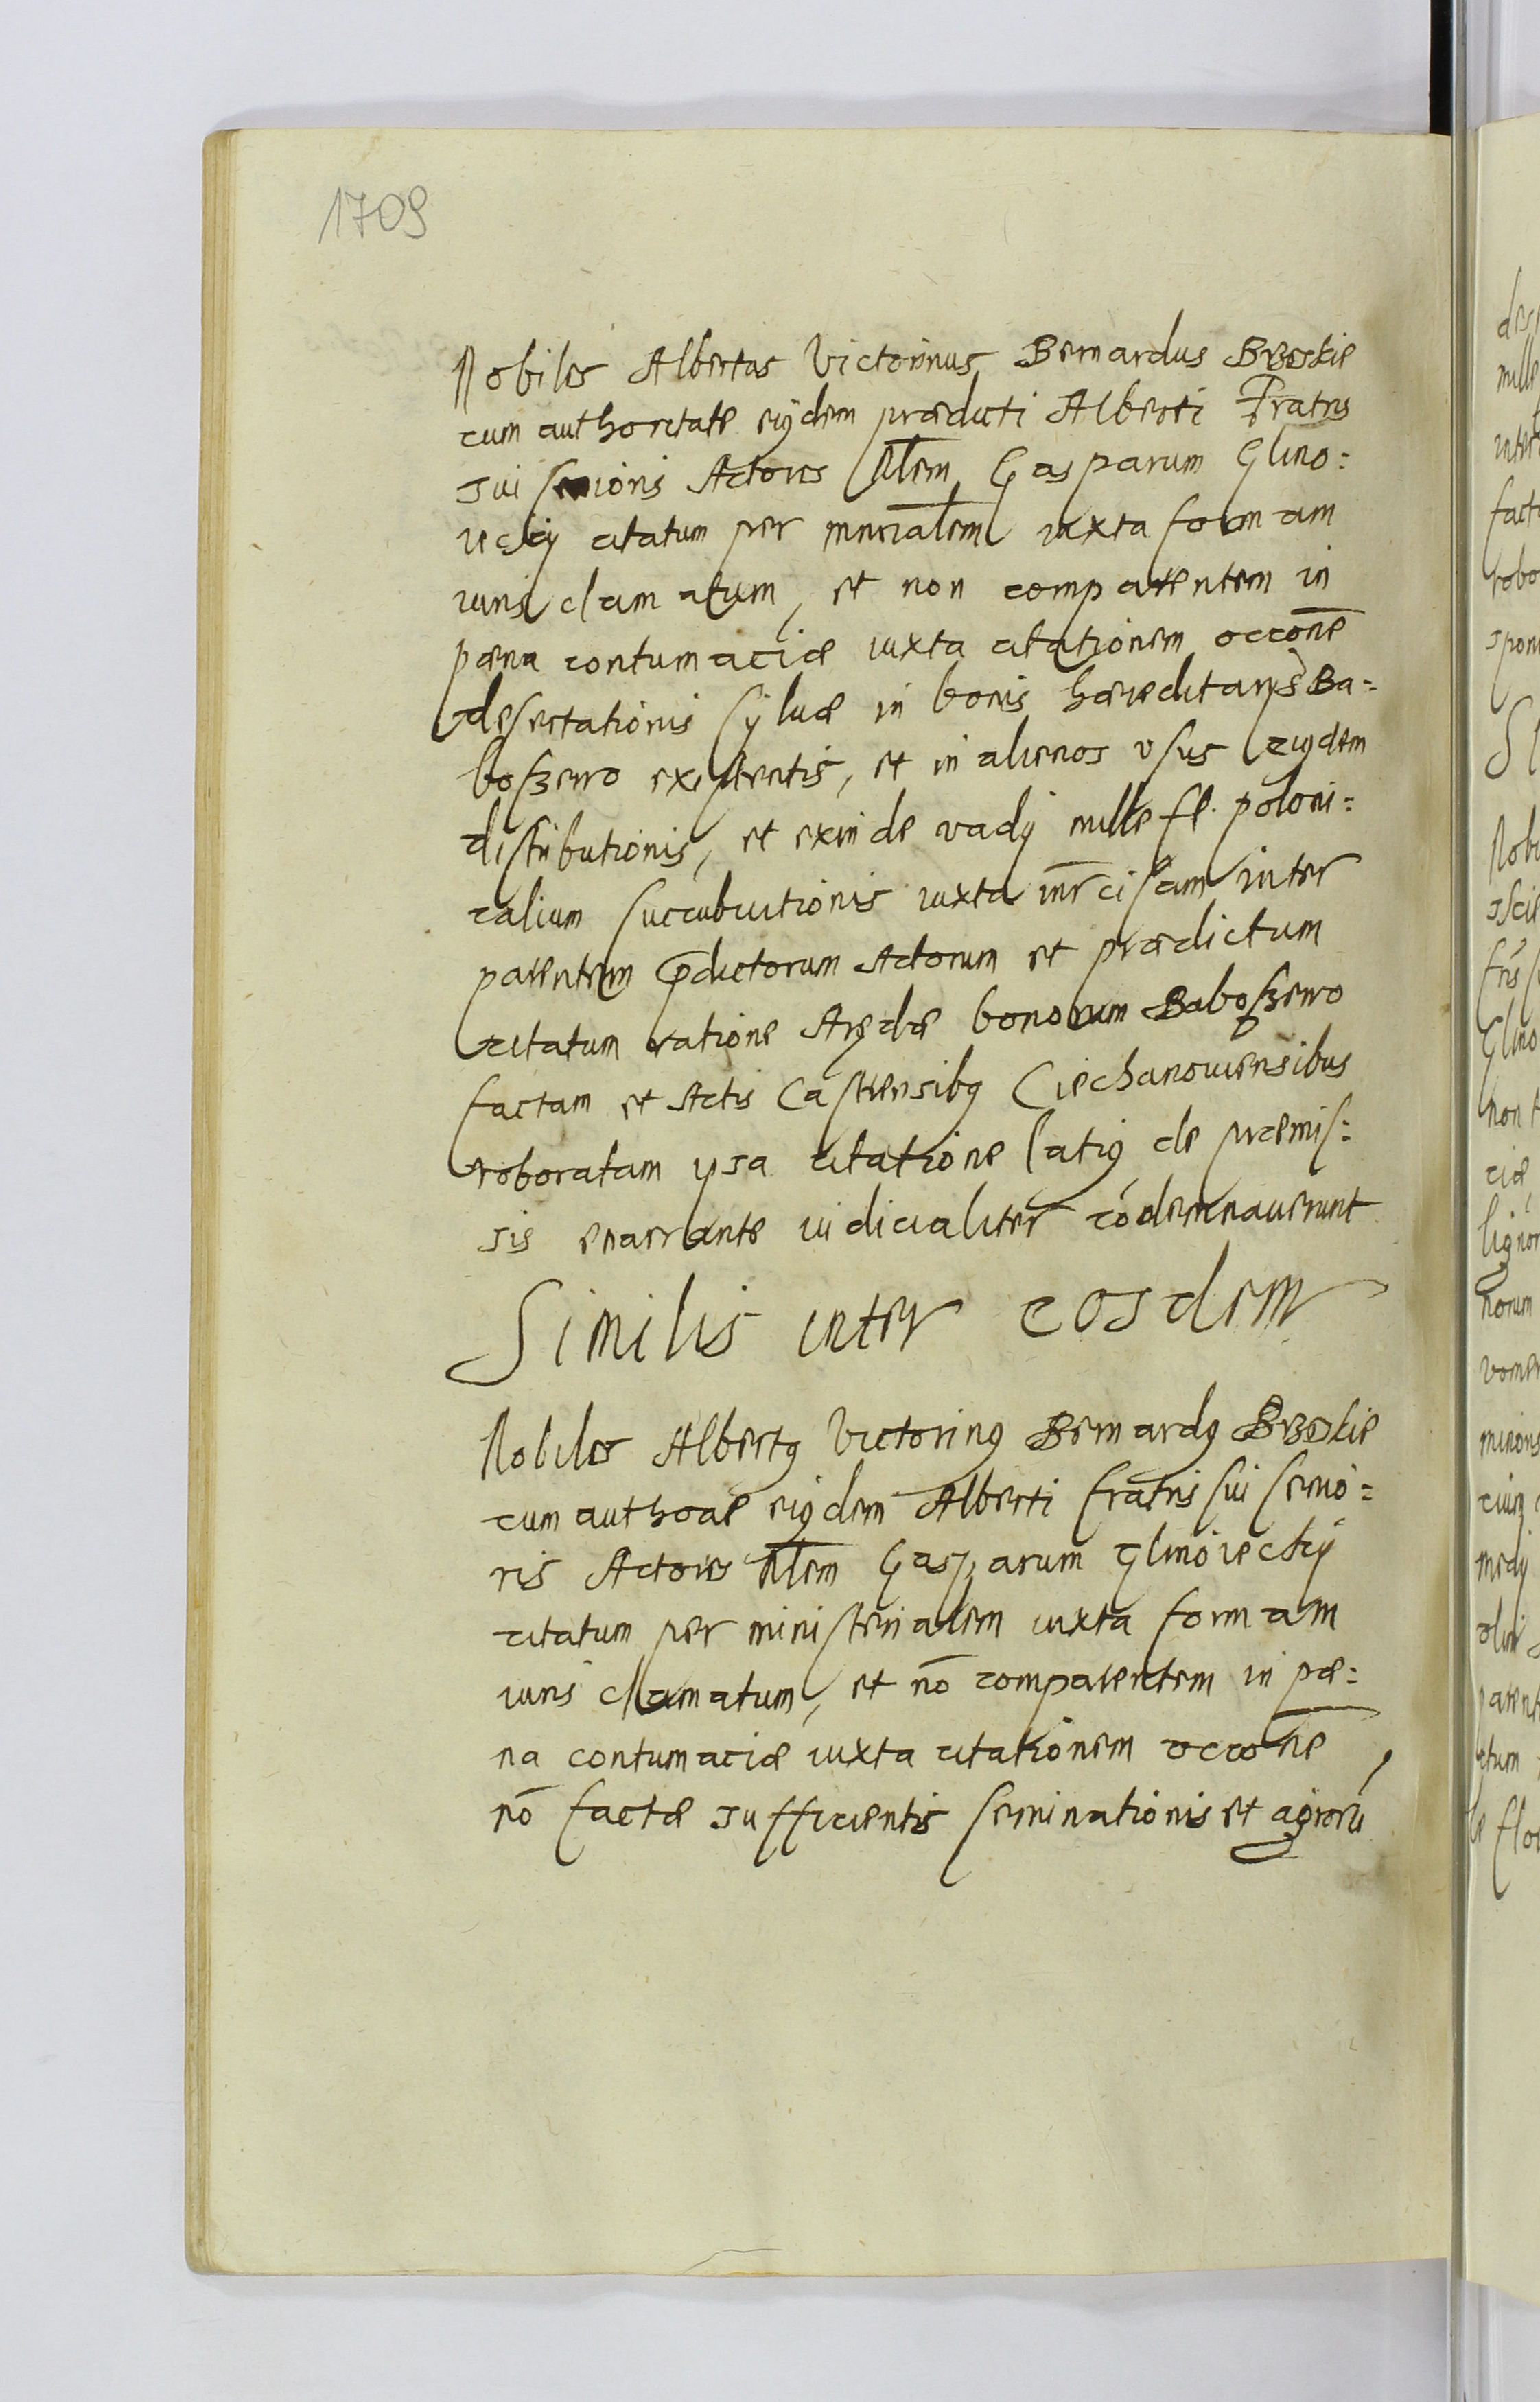 1709
Nobiles Albertus Victorinus Bernardus Brzeskie
cum authoritate eiusdem prædicti Alberti Fratris
sui senioris Actores Nlem Gasparum Glino:
iecky citatum per mnrialem iuxta formam
iuris clamatum, et non comparentem in
pæna contumaciæ iuxta citationem occone
desertationis syluæ in bonis hæreditarys Ba=
boszewo existentis, et in alienos vsus eiusdem
distributionis, et exinde vady mille fl. poloni=
calium succubuitionis iuxta inrcisam inter
parentem pdictorum Actorum et prædictum
citatum ratione Arędæ bonorum Baboszewo
factam et Actis Castrensibq Ciechanouiensibus
roboratam ipsa citatione latiq de præmis:
sis enarrante iudicialiter codemnauerunt
Similis inter eosdem
Nobiles Albertq Victorinq Bernardq Brzeskie
cum authoae eiqdem Alberti fratris sui senio=
ris Actores Nlem Gasparum Glinoiecky
citatum per ministerialem iuxta formam
iuris clamatum, et no comparentem in pæ=
na contumaciæ iuxta citationem occone
no factæ sufficientis seminationis et agroru